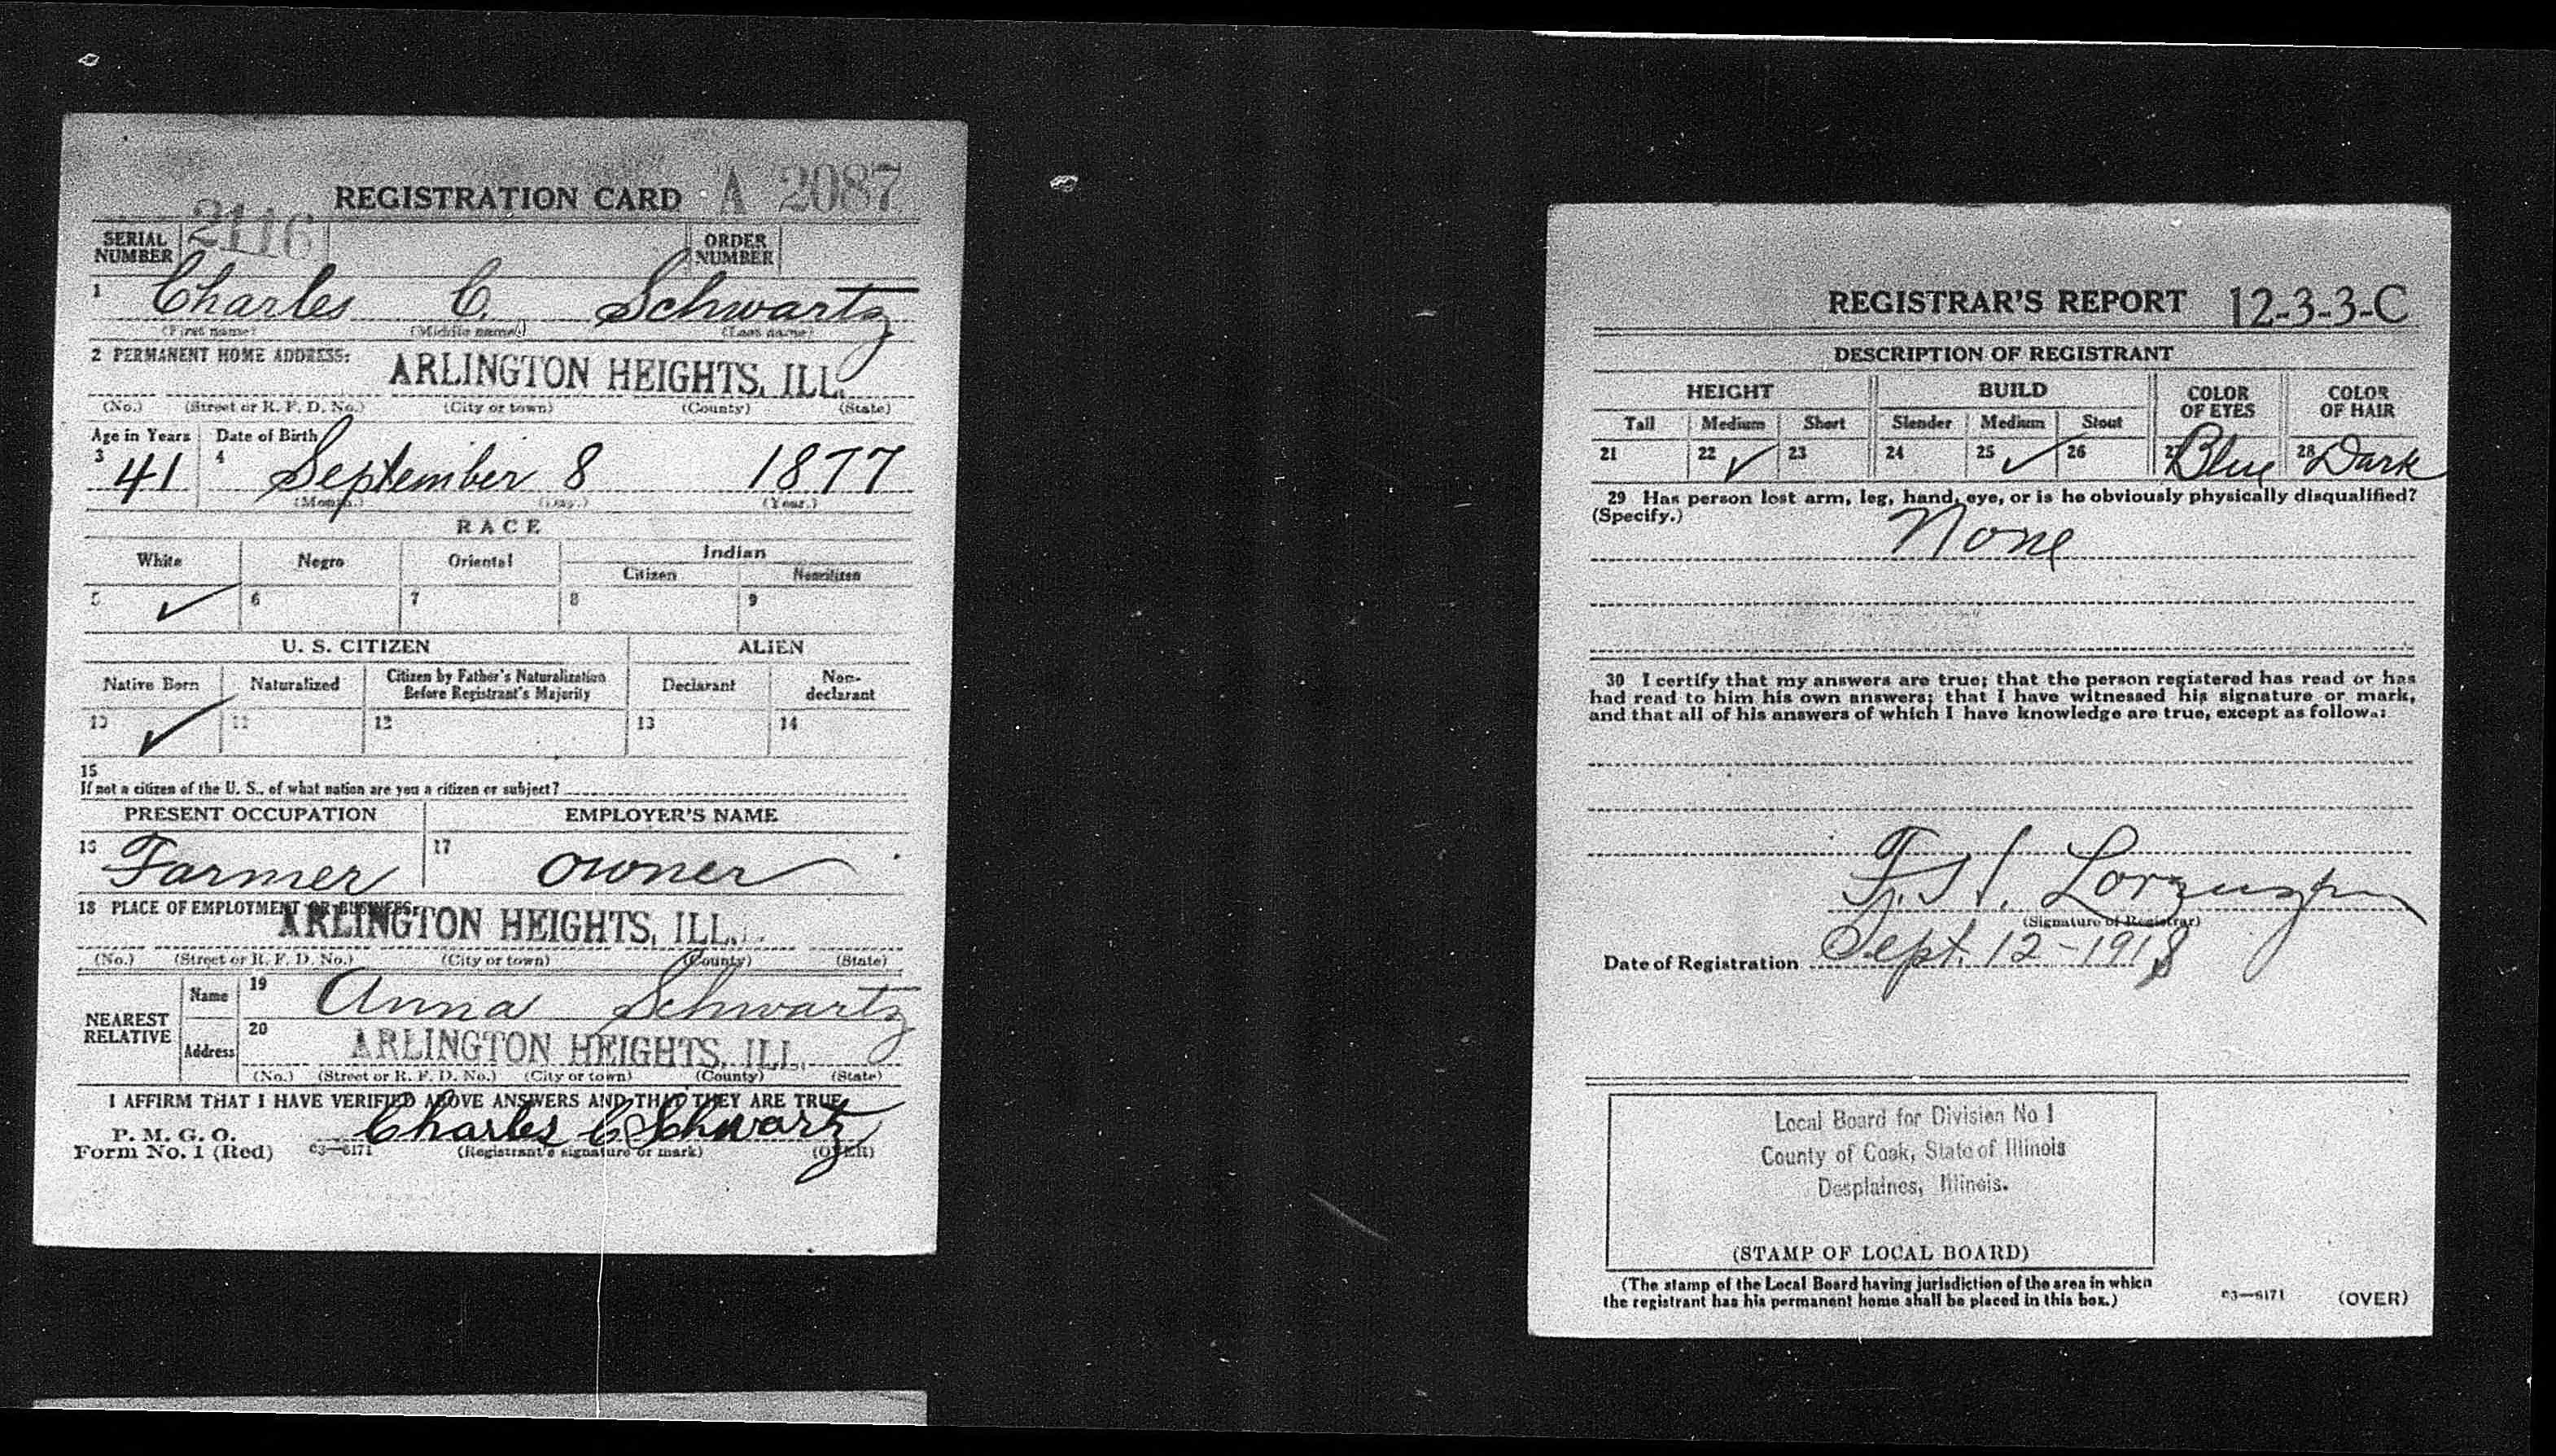 REGISTRATION CARD A 2087
SERIAL NUMBER 2116 ORDER NUMBER
1 Charles C. Schwartz
(First name) (Middle name) (Last name)
2 PERMANENT HOME ADDRESS:
ARLINGTON HEIGHTS, ILL.
(No.) (Street or R. F. D. No.) (City or town) (County) (State)
Age in Years Date of Birth
3 41 4 September 8 1877
(Month.) (Day.) (Year.)
RACE
White Negro Oriental Indian
Citizen Noncitizen
5 ✓ 6 7 8 9
U. S. CITIZEN ALIEN
Native Born Naturalized Citizen by Father's Naturalization Before Registrant's Majority Declarant Non-declarant
10 ✓ 11 12 13 14
15
If not a citizen of the U. S., of what nation are you a citizen or subject?
PRESENT OCCUPATION EMPLOYER'S NAME
16 Farmer 17 owner
18 PLACE OF EMPLOYMENT OR BUSINESS:
ARLINGTON HEIGHTS, ILL.
(No.) (Street or R. F. D. No.) (City or town) (County) (State)
NEAREST RELATIVE Name 19 Anna Schwartz
Address 20 ARLINGTON HEIGHTS, ILL.
(No.) (Street or R. F. D. No.) (City or town) (County) (State)
I AFFIRM THAT I HAVE VERIFIED ABOVE ANSWERS AND THAT THEY ARE TRUE
P. M. G. O.
Form No. 1 (Red) 03—6171 Charles C Schwartz
(Registrant's signature or mark) (OVER)
REGISTRAR'S REPORT 12-3-3-C
DESCRIPTION OF REGISTRANT
HEIGHT BUILD COLOR OF EYES COLOR OF HAIR
Tall Medium Short Slender Medium Stout
21 22 ✓ 23 24 25 ✓ 26 27 Blue 28 Dark
29 Has person lost arm, leg, hand, eye, or is he obviously physically disqualified?
(Specify.)
None
30 I certify that my answers are true; that the person registered has read or has
had read to him his own answers; that I have witnessed his signature or mark,
and that all of his answers of which I have knowledge are true, except as follows:
(Signature of Registrar)
Date of Registration Sept. 12-1918
Local Board for Division No 1
County of Cook, State of Illinois
Desplaines, Illinois.
(STAMP OF LOCAL BOARD)
(The stamp of the Local Board having jurisdiction of the area in which
the registrant has his permanent home shall be placed in this box.)
03—6171 (OVER)